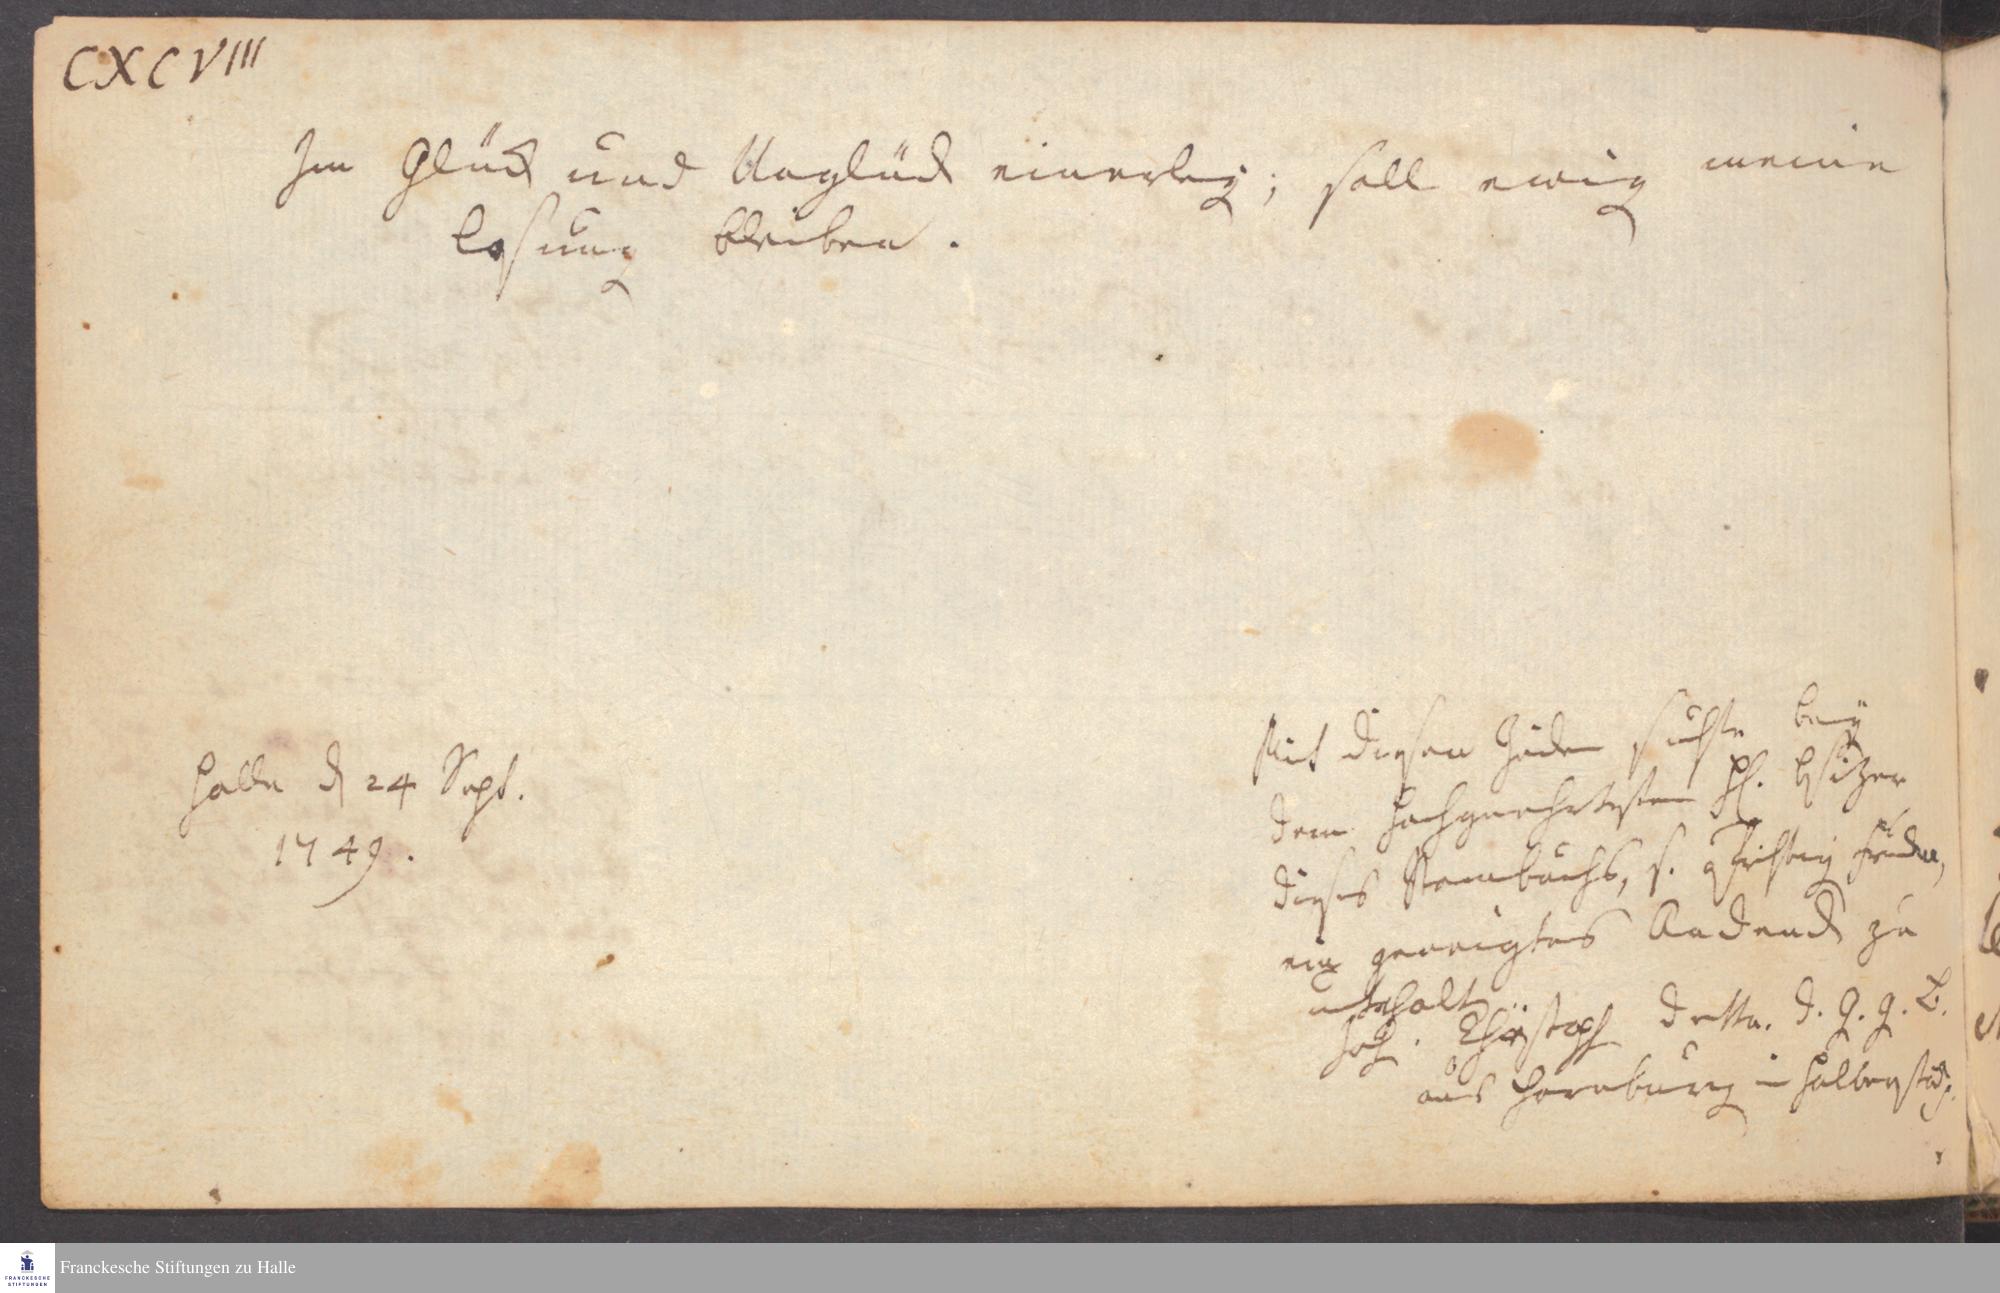 CXCVIII
Im Glück und Unglück einerley; soll ewig meine
Losung bleiben.
Halle d 24 Sept.
1749.
Mit diesen suchte bey
dem Hochgeehrtesten H. Besitzer
dieses Stambuchs, s.
ein geneigtes Andenck zu
Joh. Christoph d. G. G. B.
aus Hornburg in Halberstäd.
Franckesche Stiftungen zu Halle
FRANCKESCHE
STIFTUNGEN